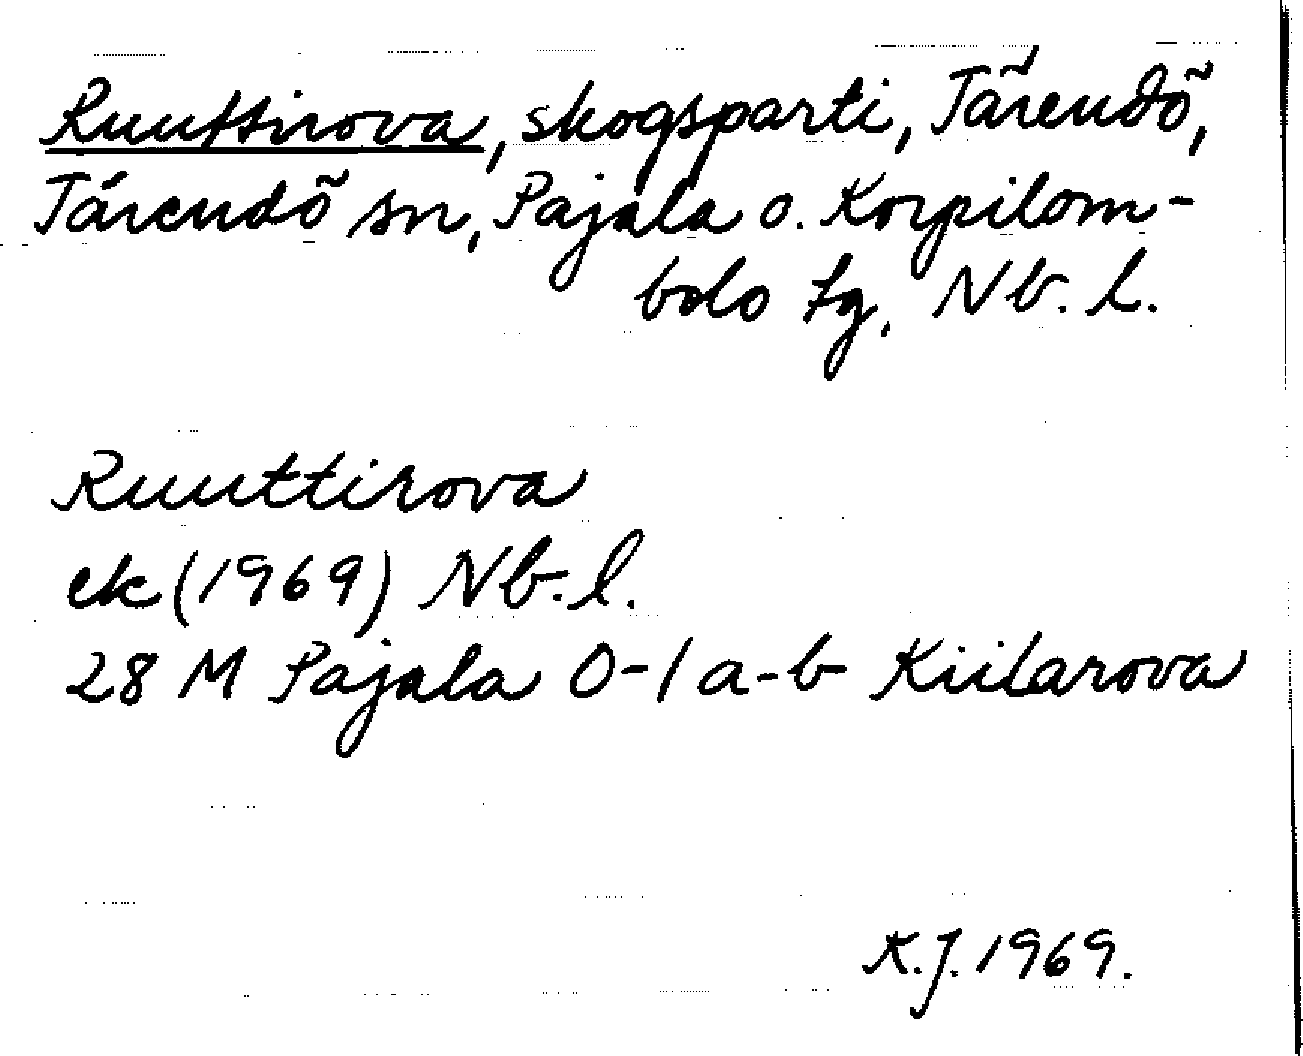 Ruuttirova, skogsparti, Tärendö,
Tärendö sn, Pajala o. Korpilom-
bolo tg, Nb. l.
Ruuttirova
ek (1969) Nb. l.
28 M Pajala 0-1 a-b Kiilarova
K.J. 1969.